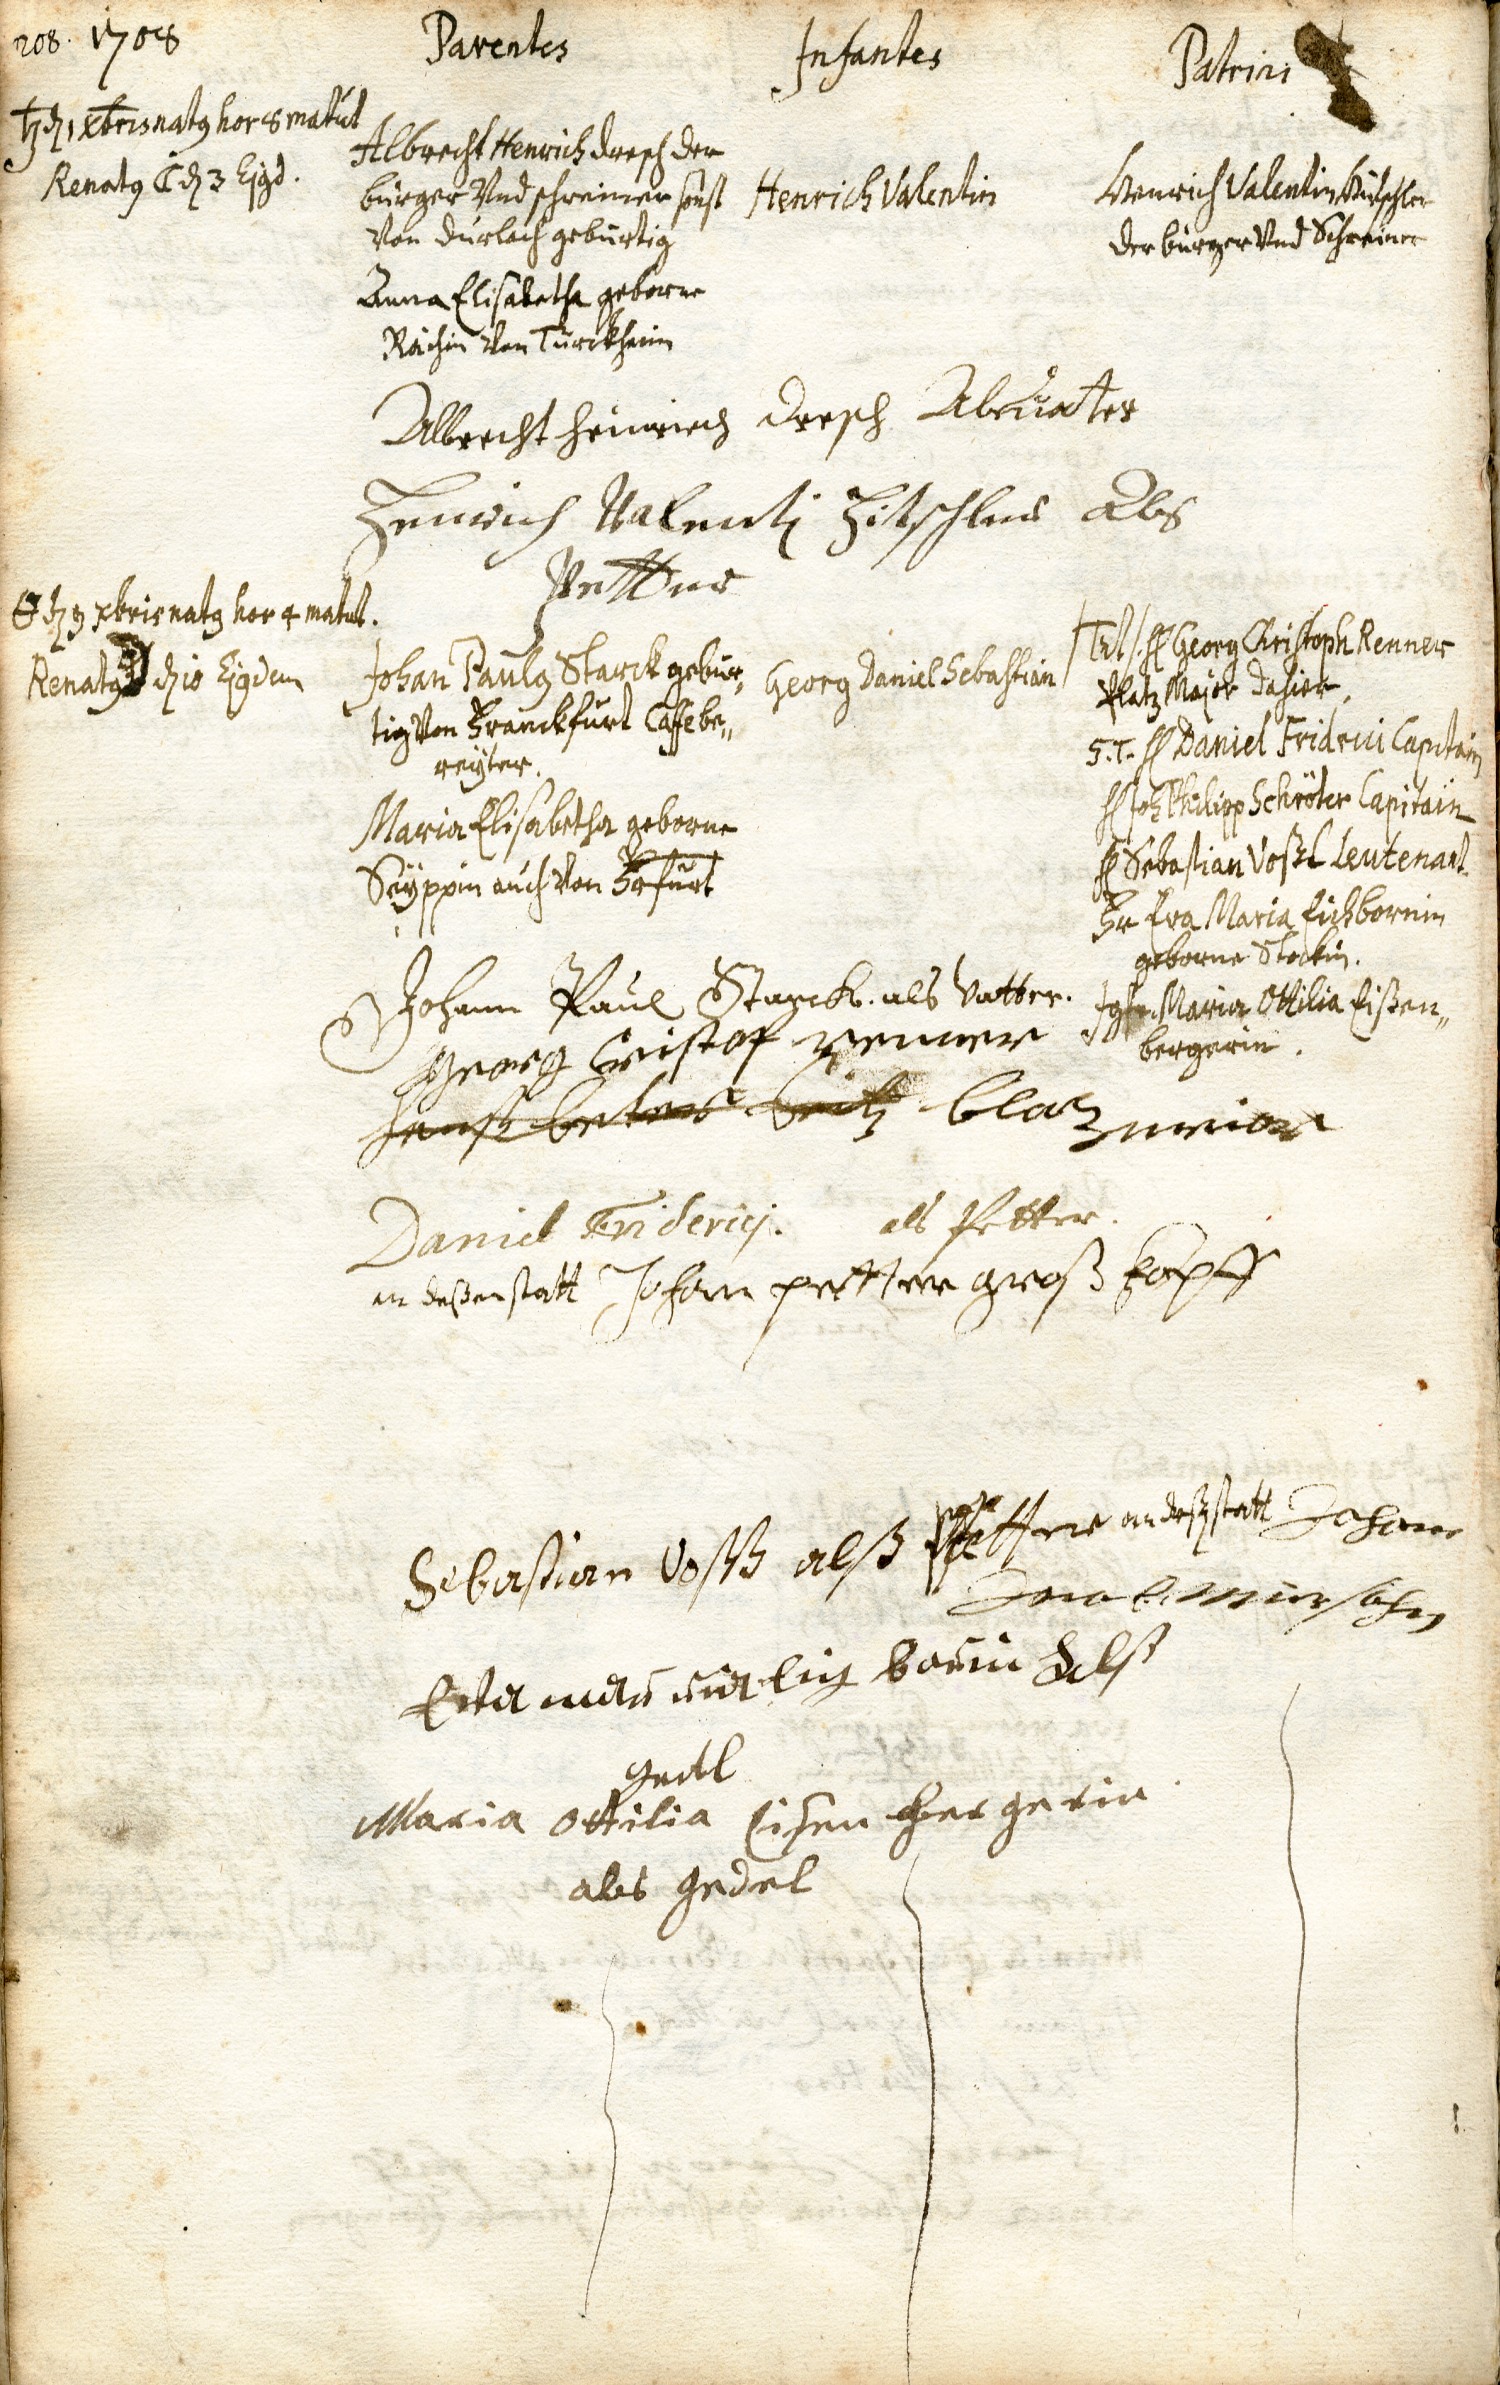 208. 1708
Parentes
Infantes
Patrini
♄ d. 1 Xbris natg hor 8 matut
Renatg ☾ d. 3 Ejgd.
Albrecht Henrich dresch der
bürger Vnd schreiner sonst
Von durlach gebürtig
Anna Elisabetha geborne
Von Türckheim
Henrich Valentin
Henrich Valentin
der bürger Vnd Schreiner
Albrecht heinrich dresch
Henrich Valenti Als
Petter
d. 9 xbris natg hor 4 matut.
Renatg d. 10 Ejgdem
Johan Paulg Starck gebür„
tig Von Franckfurt Caffebe„
reyter.
Maria Elisabetha geborne
Seyppin auch Von
Georg Daniel Sebastian
Tit. H Georg Christoph Renner
Platz Major dahier.
S.T. H Daniel Friderici Capitain
H Joh Philipp Schröter Capitain
H Sebastian Voßl Leutenant
Fr Eva Maria Eichbornin
geborne Stockin.
Jgfr. Maria Ottilia Eißen„
bergerin.
Johann Paul Starck. als Vatter.
Georg Cristof renner
blatz meior
Daniel Fridericj. als Petter.
an deßen statt Johan petter groß kopff
Sebastian Voßß alß Pfetter an deß statt Johann
Eva
gedl
Maria Ottilia Eisen bergerin
als gedel